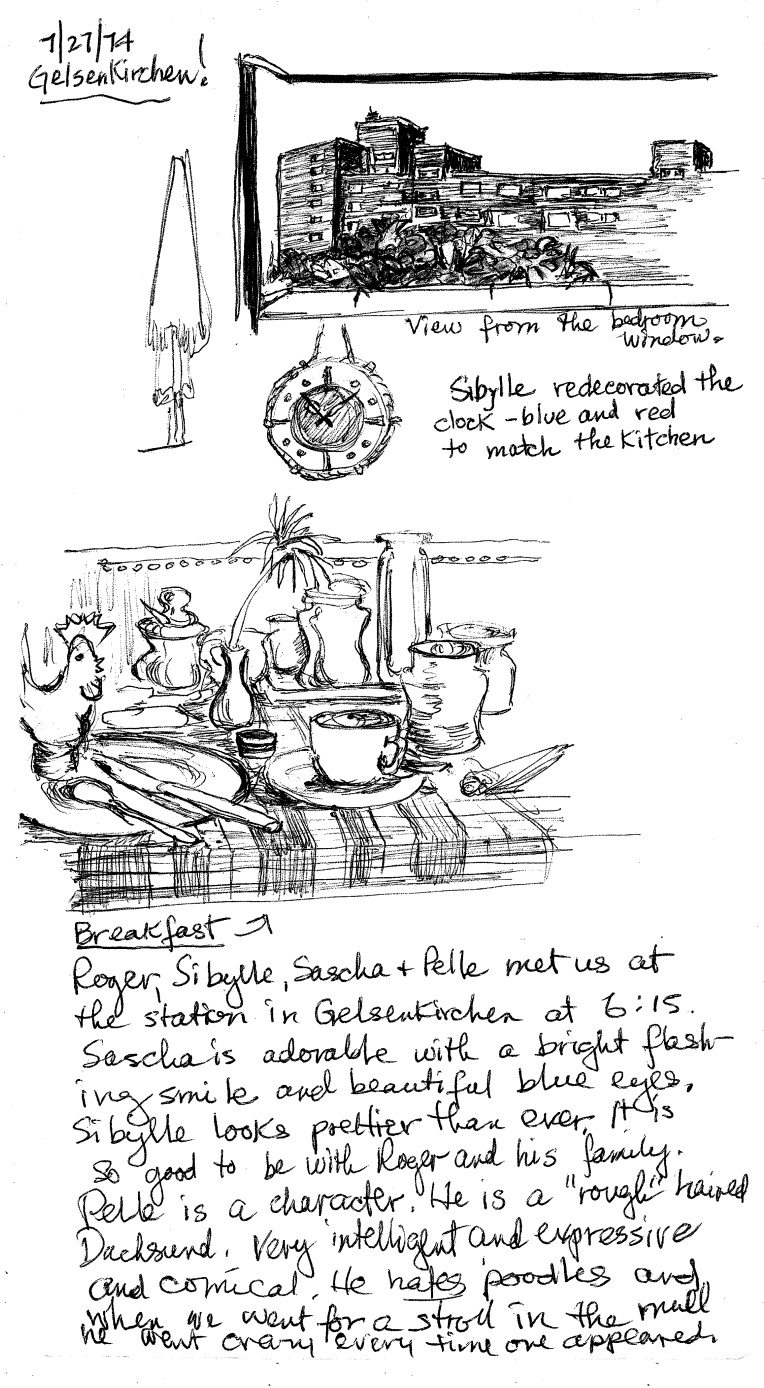 7/27/74
Gelsenkirchen!
View from the bedroom
window.
Sibylle redecorated the
clock - blue and red
to match the kitchen
Breakfast
Roger, Sibylle, Sascha + Pelle met us at
the station in Gelsenkirchen at 6:15.
Sascha is adorable with a bright flash-
ing smile and beautiful blue eyes.
Sibylle looks prettier than ever. It is
so good to be with Roger and his family.
Pelle is a character. He is a "rough" haired
Dachsund. Very intelligent and expressive
and comical. He hates poodles and
when we went for a stroll in the mall
he went crazy every time one appeared.